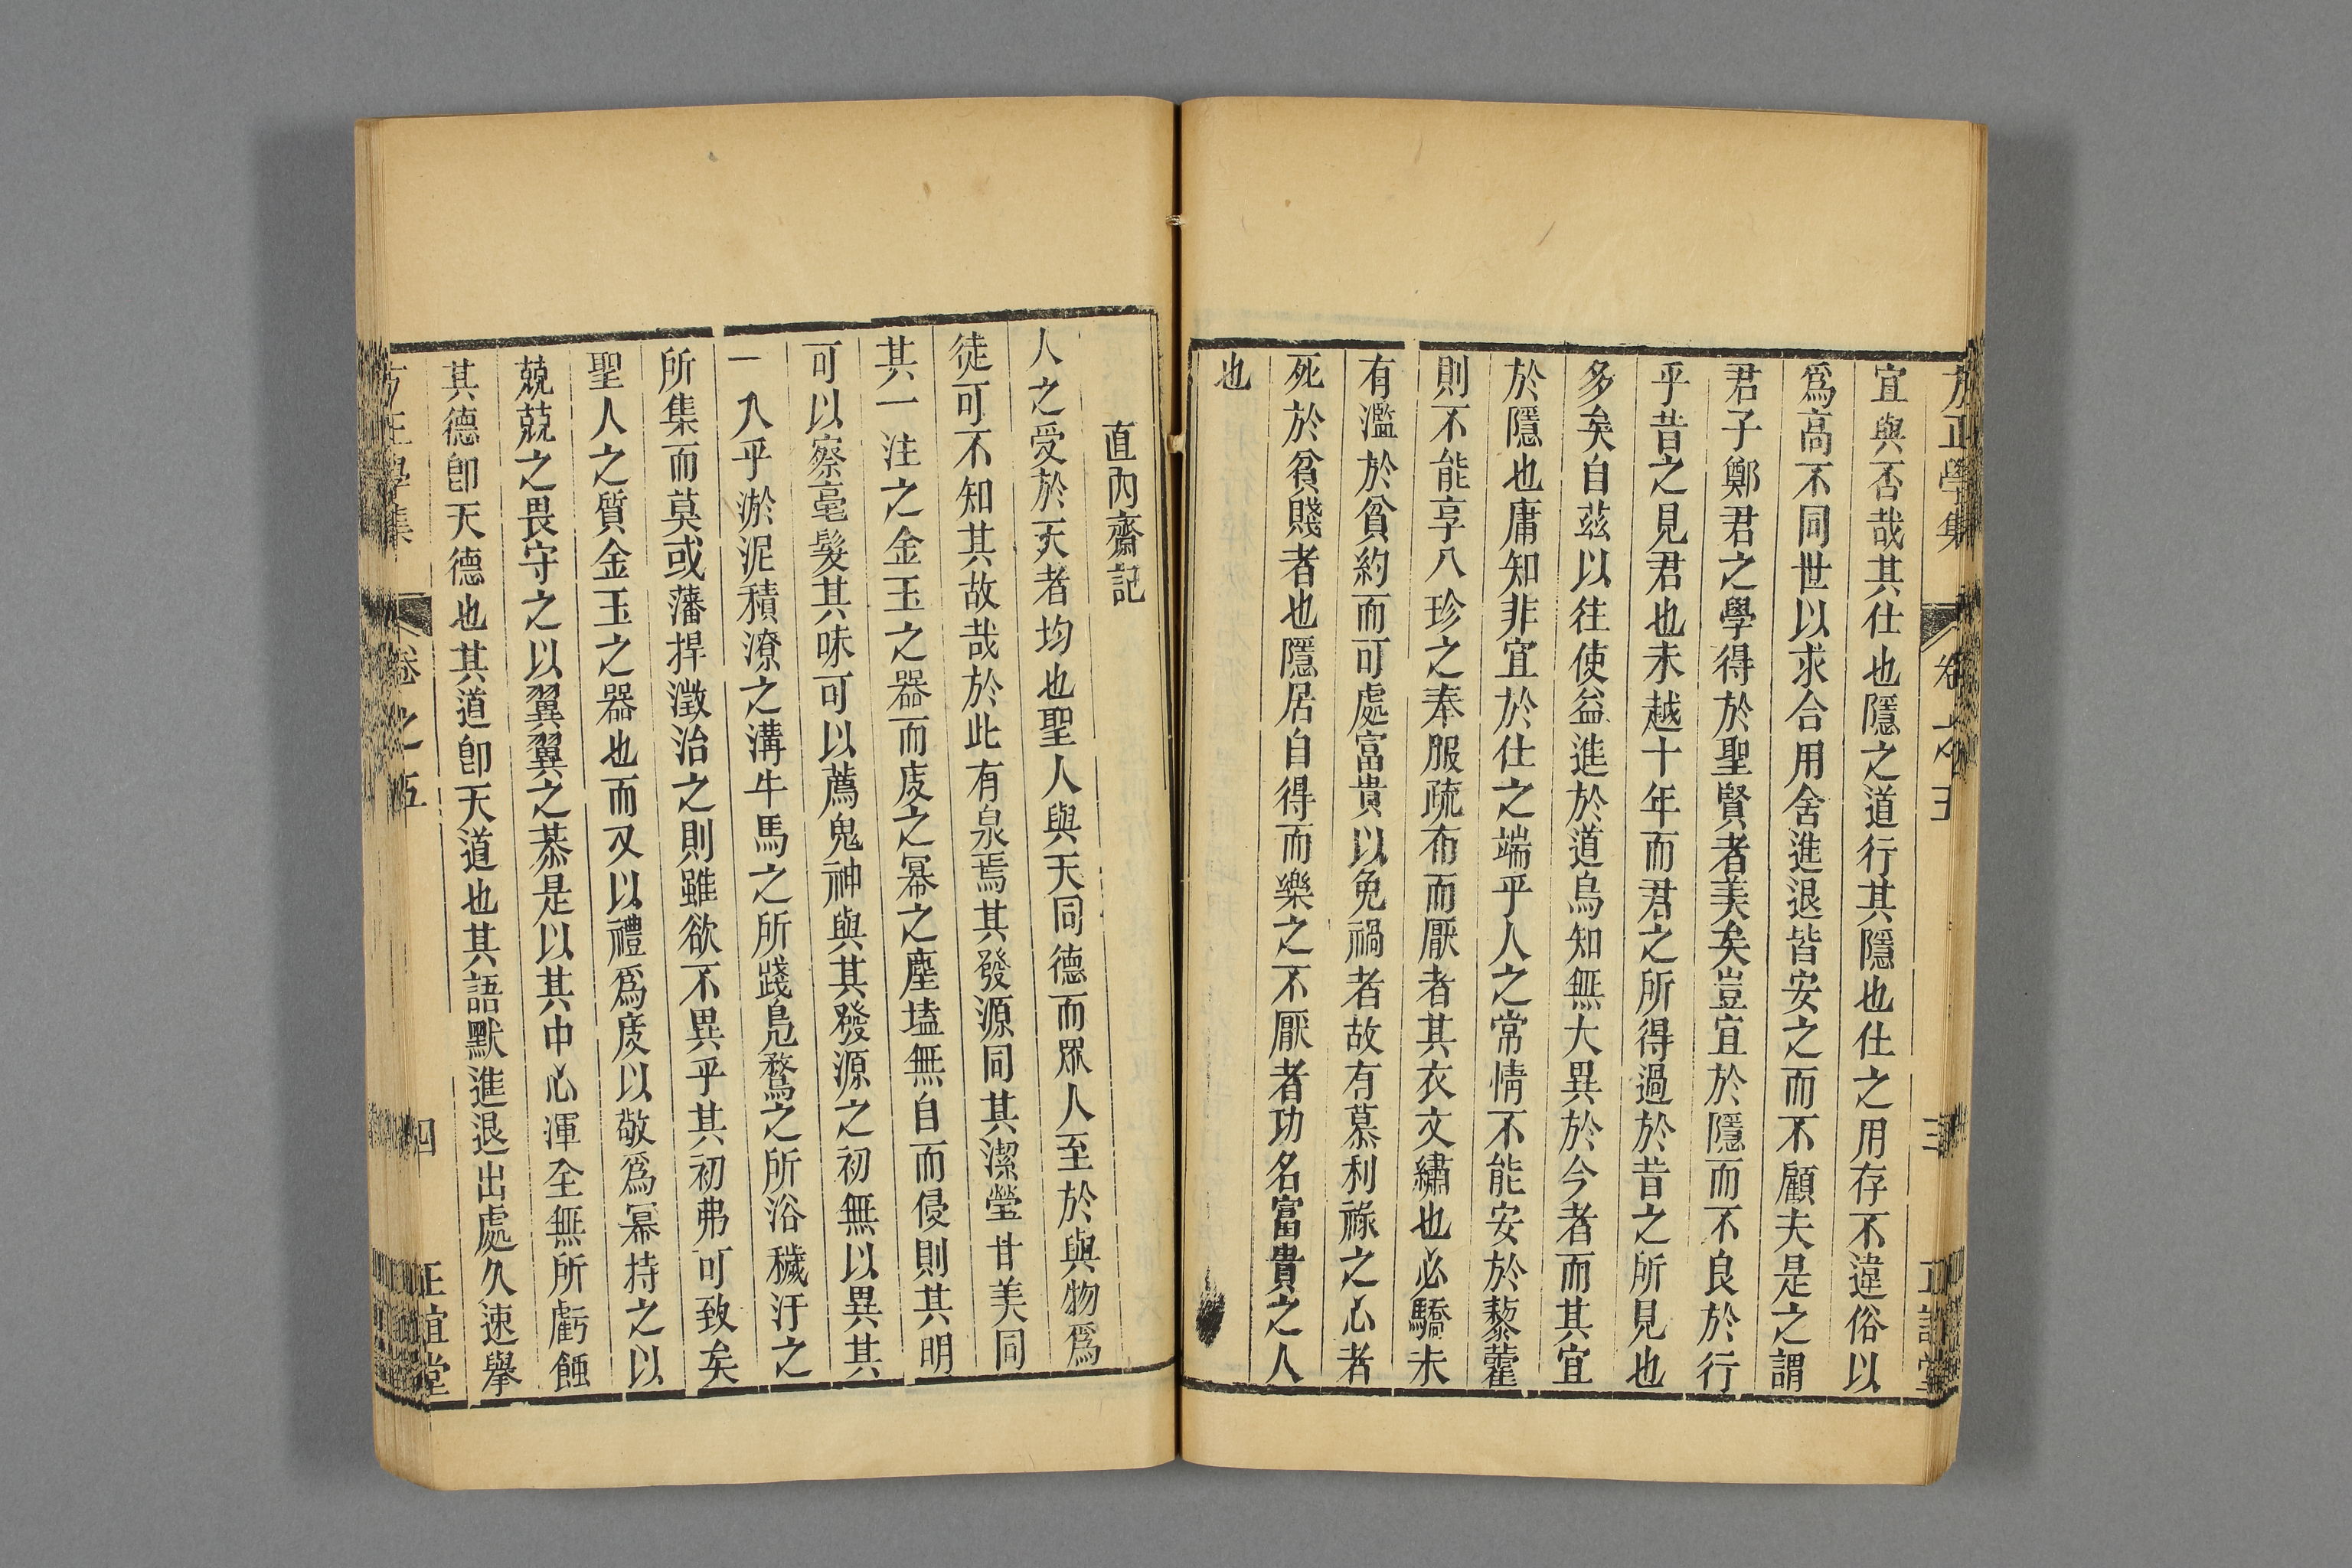 方正學集 卷之五 三 正誼堂
宜與否哉其仕也隱之道行其隱也仕之用存不違俗以
爲高不同世以求合用舍進退皆安之而不顧夫是之謂
君子鄭君之學得於聖賢者美矣豈宜於隱而不良於行
乎昔之見君也未越十年而君之所得過於昔之所見也
多矣自茲以往使益進於道烏知無大異於今者而其宜
於隱也庸知非宜於仕之端乎人之常情不能安於藜藿
則不能享八珍之奉服疏布而厭者其衣文繡也必驕未
有濫於貧約而可處富貴以免禍者故有慕利祿之心者
死於貧賤者也隱居自得而樂之不厭者功名富貴之人
也
直內齋記
人之受於天者均也聖人與天同德而眾人至於與物爲
徒可不知其故哉於此有泉焉其發源同其潔瑩甘美同
其一注之金玉之器而庋之冪之塵壒無自而侵則其明
可以察毫髮其味可以薦鬼神與其發源之初無以異其
一入乎淤泥積潦之溝牛馬之所踐鳧鶩之所浴穢汙之
所集而莫或藩捍澂治之則雖欲不異乎其初弗可致矣
聖人之質金玉之器也而又以禮爲庋以敬爲冪持之以
兢兢之畏守之以翼翼之恭是以其中心渾全無所虧蝕
其德卽天德也其道卽天道也其語默進退出處久速擧
方正學集 卷之五 四 正誼堂